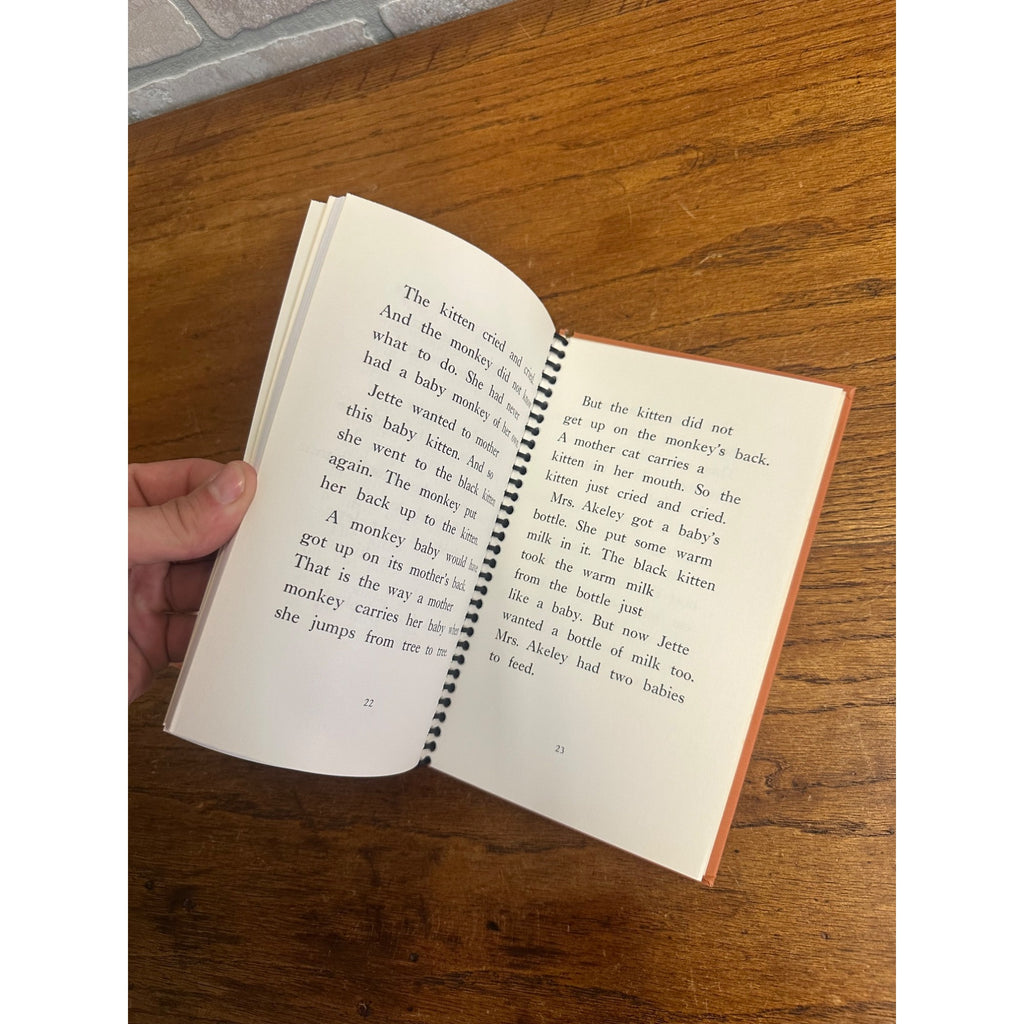 The kitten cried and cried.
And the monkey did not know
what to do. She had never
had a baby monkey of her own.
Jette wanted to mother
this baby kitten. And so
she went to the black kitten
again. The monkey put
her back up to the kitten.
A monkey baby would have
got up on its mother's back.
That is the way a mother
monkey carries her baby when
she jumps from tree to tree.
22
But the kitten did not
get up on the monkey's back.
A mother cat carries a
kitten in her mouth. So the
kitten just cried and cried.
Mrs. Akeley got a baby's
bottle. She put some warm
milk in it. The black kitten
took the warm milk
from the bottle just
like a baby. But now Jette
wanted a bottle of milk too.
Mrs. Akeley had two babies
to feed.
23